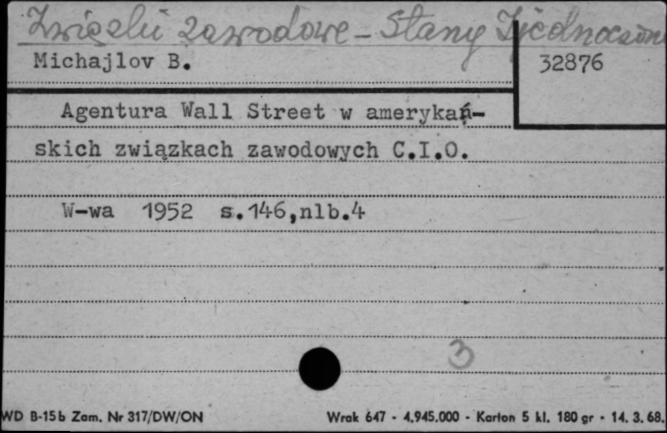 Związki zawodowe - Stany Zjednoczone
Michajlov B.
32876
Agentura Wall Street w amerykań-
skich związkach zawodowych C.I.O.
W-wa 1952 s.146,nlb.4
3
WD B-15b Zam. Nr 317/DW/ON
Wrak 647 - 4.945.000 - Karton 5 kl. 180 gr - 14. 3. 68.